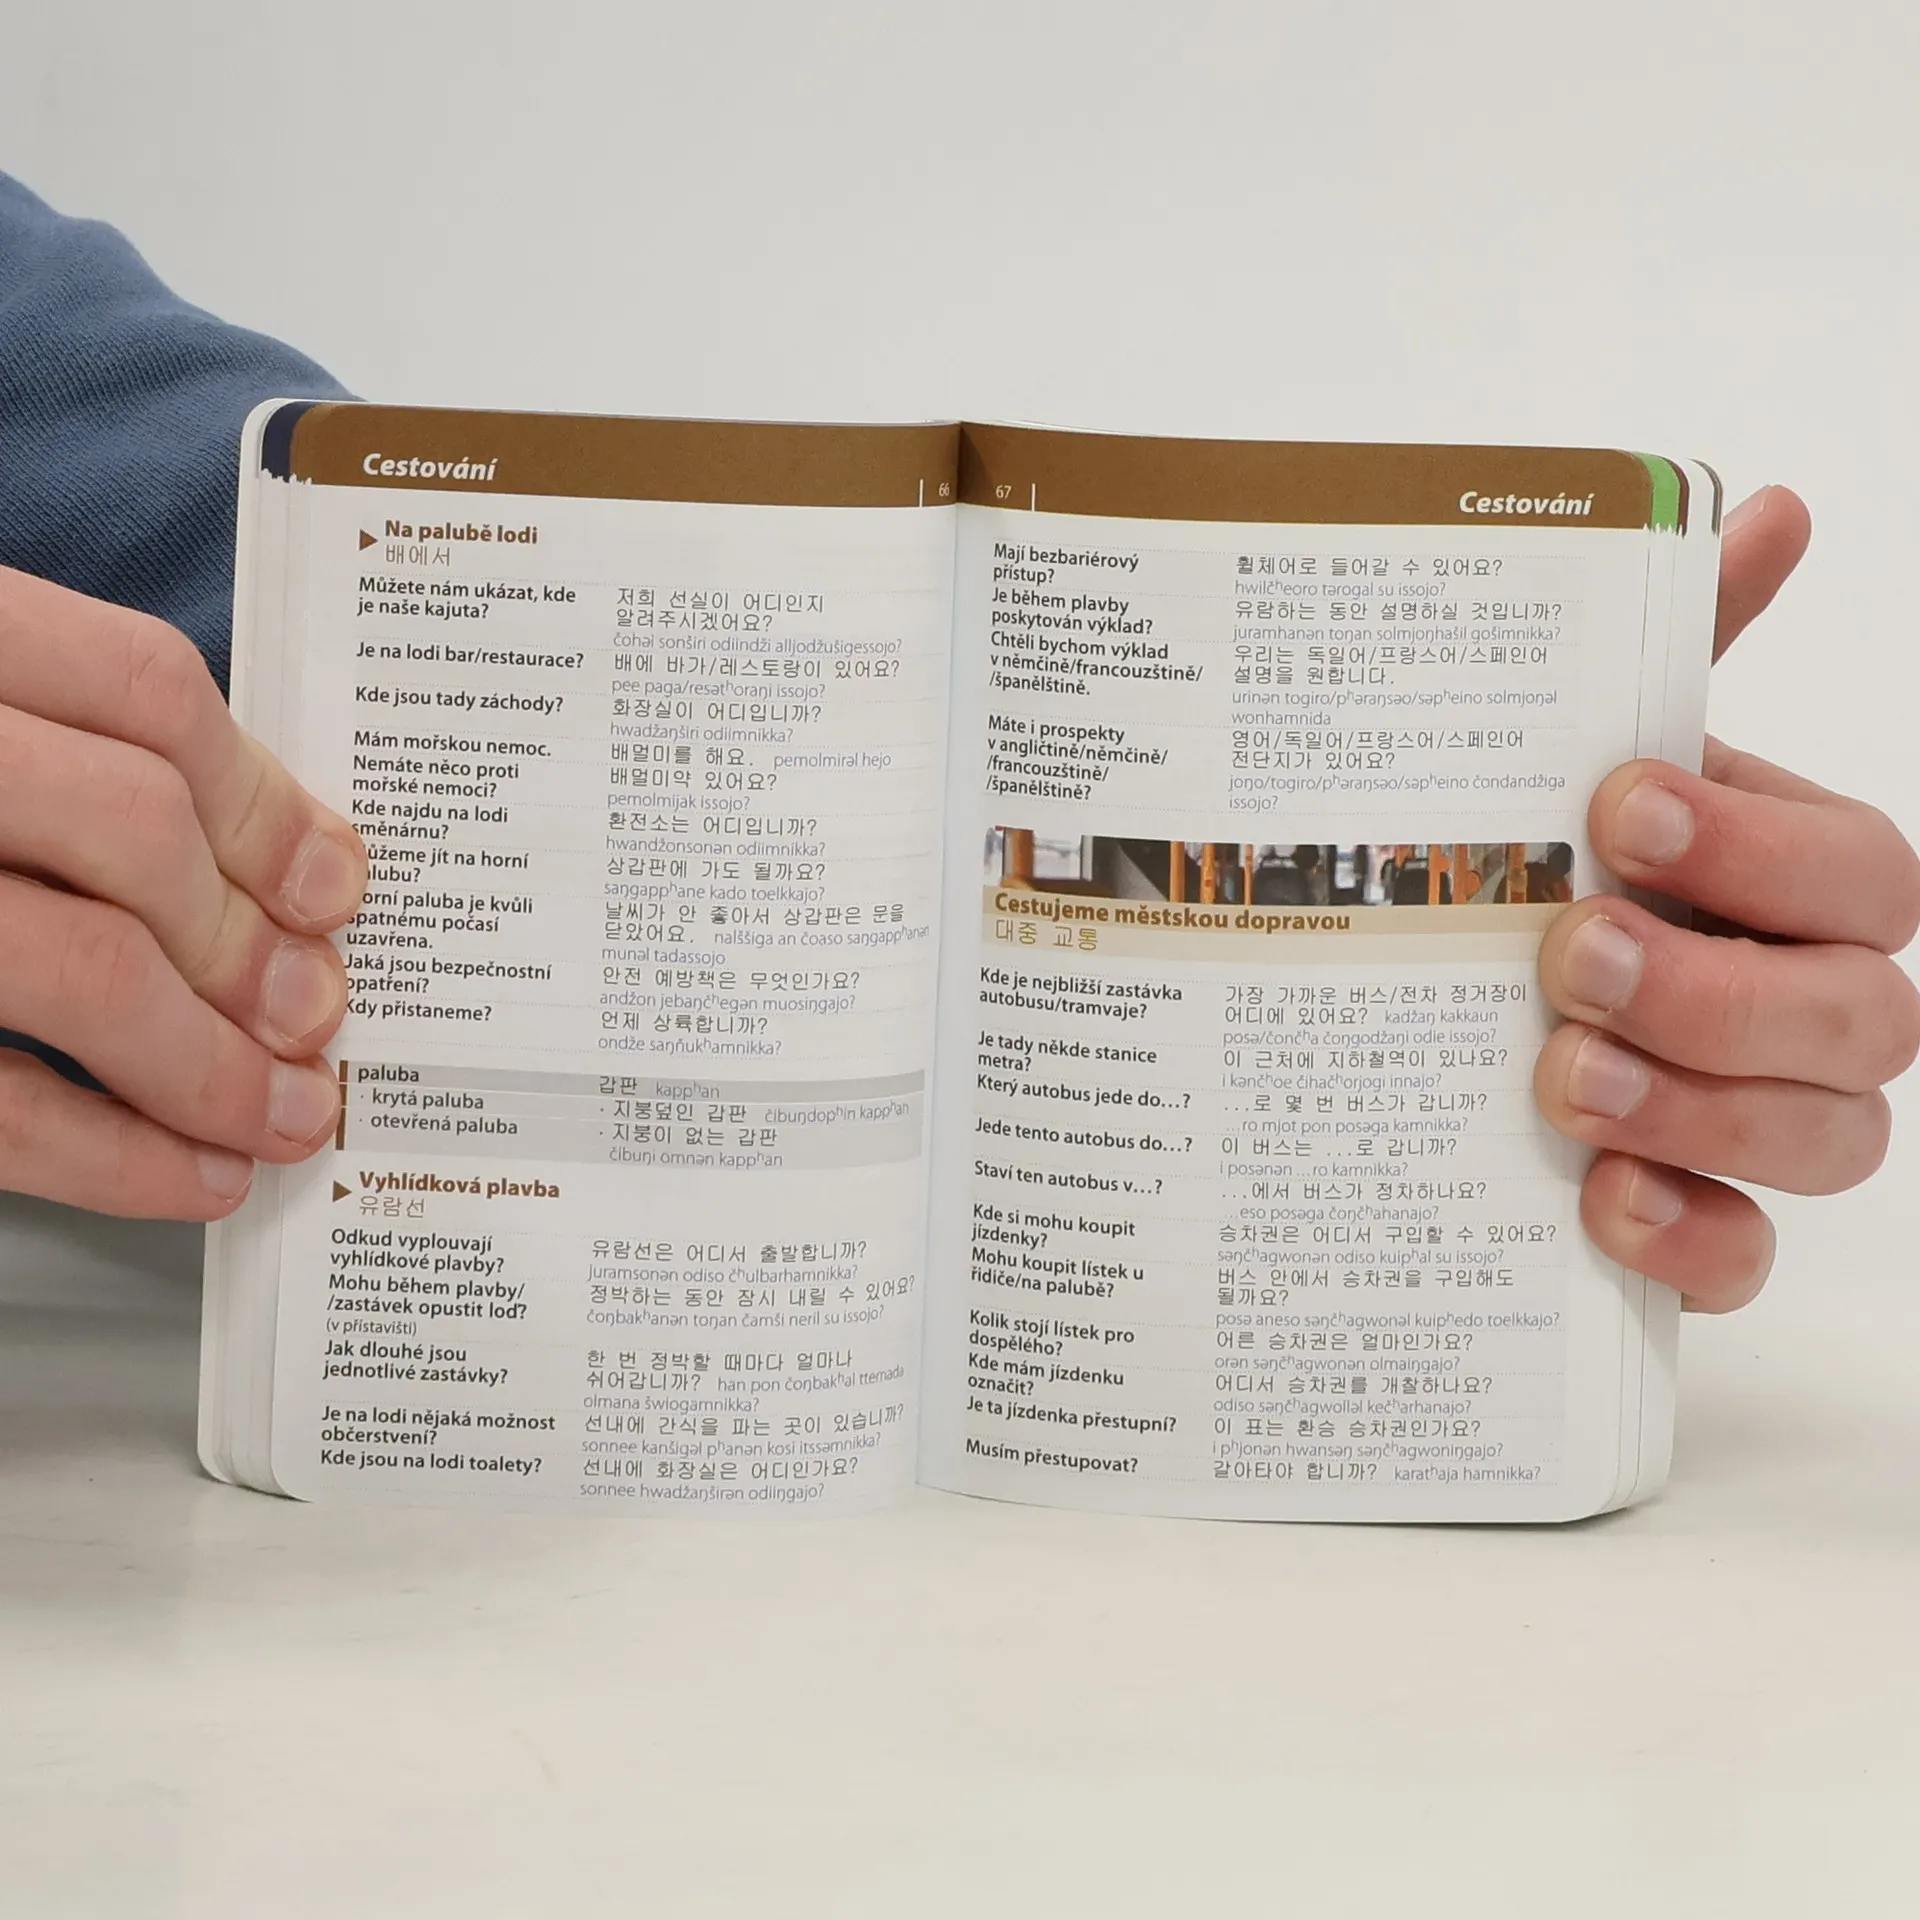 Cestování
66
Na palubě lodi
배에서
Můžete nám ukázat, kde
je naše kajuta?
저희 선실이 어디인지
알려주시겠어요?
čohəi sonširi odiindži alljodžušigessojo?
Je na lodi bar/restaurace?
배에 바가/레스토랑이 있어요?
pee paga/resətʰoraŋi issojo?
Kde jsou tady záchody?
화장실이 어디입니까?
hwadžaŋširi odiimnikka?
Mám mořskou nemoc.
배멀미를 해요. pemolmirəl hejo
Nemáte něco proti
mořské nemoci?
배멀미약 있어요?
pemolmijak issojo?
Kde najdu na lodi
směnárnu?
환전소는 어디입니까?
hwandžonsonən odiimnikka?
ůžeme jít na horní
alubu?
상갑판에 가도 될까요?
saŋgappʰane kado toelkkajo?
orní paluba je kvůli
špatnému počasí
uzavřena.
날씨가 안 좋아서 상갑판은 문을
닫았어요. nalššiga an čoaso saŋgappʰanən
munəl tadassojo
Jaká jsou bezpečnostní
opatření?
안전 예방책은 무엇인가요?
andžon jebaŋčʰegən muosiŋgajo?
Kdy přistaneme?
언제 상륙합니까?
ondže saŋňukʰamnikka?
paluba
갑판 kappʰan
· krytá paluba
· 지붕덮인 갑판 čibuŋdopʰin kappʰan
· otevřená paluba
· 지붕이 없는 갑판
čibuŋi omnən kappʰan
Vyhlídková plavba
유람선
Odkud vyplouvají
vyhlídkové plavby?
유람선은 어디서 출발합니까?
juramsonən odiso čʰulbarhamnikka?
Mohu během plavby/
/zastávek opustit loď?
(v přístavišti)
정박하는 동안 잠시 내릴 수 있어요?
čoŋbakʰanən toŋan čamši neril su issojo?
Jak dlouhé jsou
jednotlivé zastávky?
한 번 정박할 때마다 얼마나
쉬어갑니까? han pon čoŋbakʰal ttemada
olmana šwiogamnikka?
Je na lodi nějaká možnost
občerstvení?
선내에 간식을 파는 곳이 있습니까?
sonnee kanšigəl pʰanən kosi itssəmnikka?
Kde jsou na lodi toalety?
선내에 화장실은 어디인가요?
sonnee hwadžaŋširən odiiŋgajo?
67
Cestování
Mají bezbariérový
přístup?
휠체어로 들어갈 수 있어요?
hwilčʰeoro tərogal su issojo?
Je během plavby
poskytován výklad?
유람하는 동안 설명하실 것입니까?
juramhanən toŋan solmjoŋhašil gošimnikka?
Chtěli bychom výklad
v němčině/francouzštině/
/španělštině.
우리는 독일어/프랑스어/스페인어
설명을 원합니다.
urinən togiro/pʰəraŋsəo/səpʰeino solmjoŋəl
wonhamnida
Máte i prospekty
v angličtině/němčině/
/francouzštině/
/španělštině?
영어/독일어/프랑스어/스페인어
전단지가 있어요?
joŋo/togiro/pʰəraŋsəo/səpʰeino čondandžiga
issojo?
Cestujeme městskou dopravou
대중 교통
Kde je nejbližší zastávka
autobusu/tramvaje?
가장 가까운 버스/전차 정거장이
어디에 있어요? kadžaŋ kakkaun
posə/čončʰa čoŋgodžaŋi odie issojo?
Je tady někde stanice
metra?
이 근처에 지하철역이 있나요?
i kənčʰoe čihačʰorjogi innajo?
Který autobus jede do...?
...로 몇 번 버스가 갑니까?
...ro mjot pon posəga kamnikka?
Jede tento autobus do...?
이 버스는 ...로 갑니까?
i posənən ...ro kamnikka?
Staví ten autobus v...?
...에서 버스가 정차하나요?
...eso posəga čoŋčʰahanajo?
Kde si mohu koupit
jízdenky?
승차권은 어디서 구입할 수 있어요?
səŋčʰagwonən odiso kuipʰal su issojo?
Mohu koupit lístek u
řidiče/na palubě?
버스 안에서 승차권을 구입해도
될까요?
posə aneso səŋčʰagwonəl kuipʰedo toelkkajo?
Kolik stojí lístek pro
dospělého?
어른 승차권은 얼마인가요?
orən səŋčʰagwonən olmaiŋgajo?
Kde mám jízdenku
označit?
어디서 승차권를 개찰하나요?
odiso səŋčʰagwolləl kečʰarhanajo?
Je ta jízdenka přestupní?
이 표는 환승 승차권인가요?
i pʰjonən hwansəŋ səŋčʰagwoniŋgajo?
Musím přestupovat?
갈아타야 합니까? karatʰaja hamnikka?